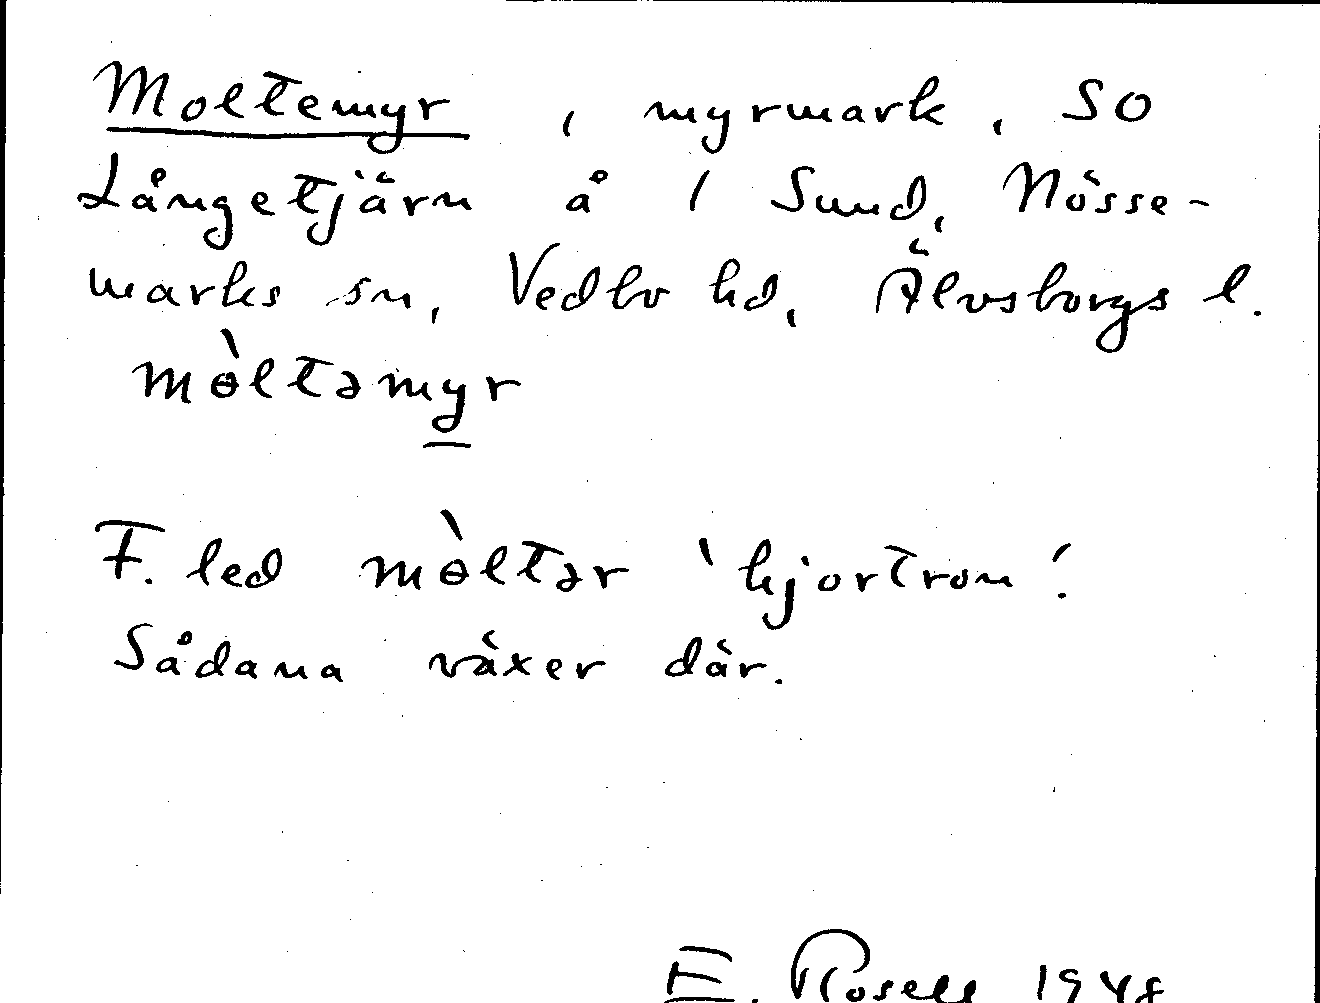 Moltemyr, myrmark, SO
Långetjärn å 1 Sund, Nösse-
marks sn, Vedbo hd, Älvsborgs l.
mɵ̀ltəmy̲r
F. led mɵ̀ltər 'hjortron'.
Sådana växer där.
E. Rosell 1948